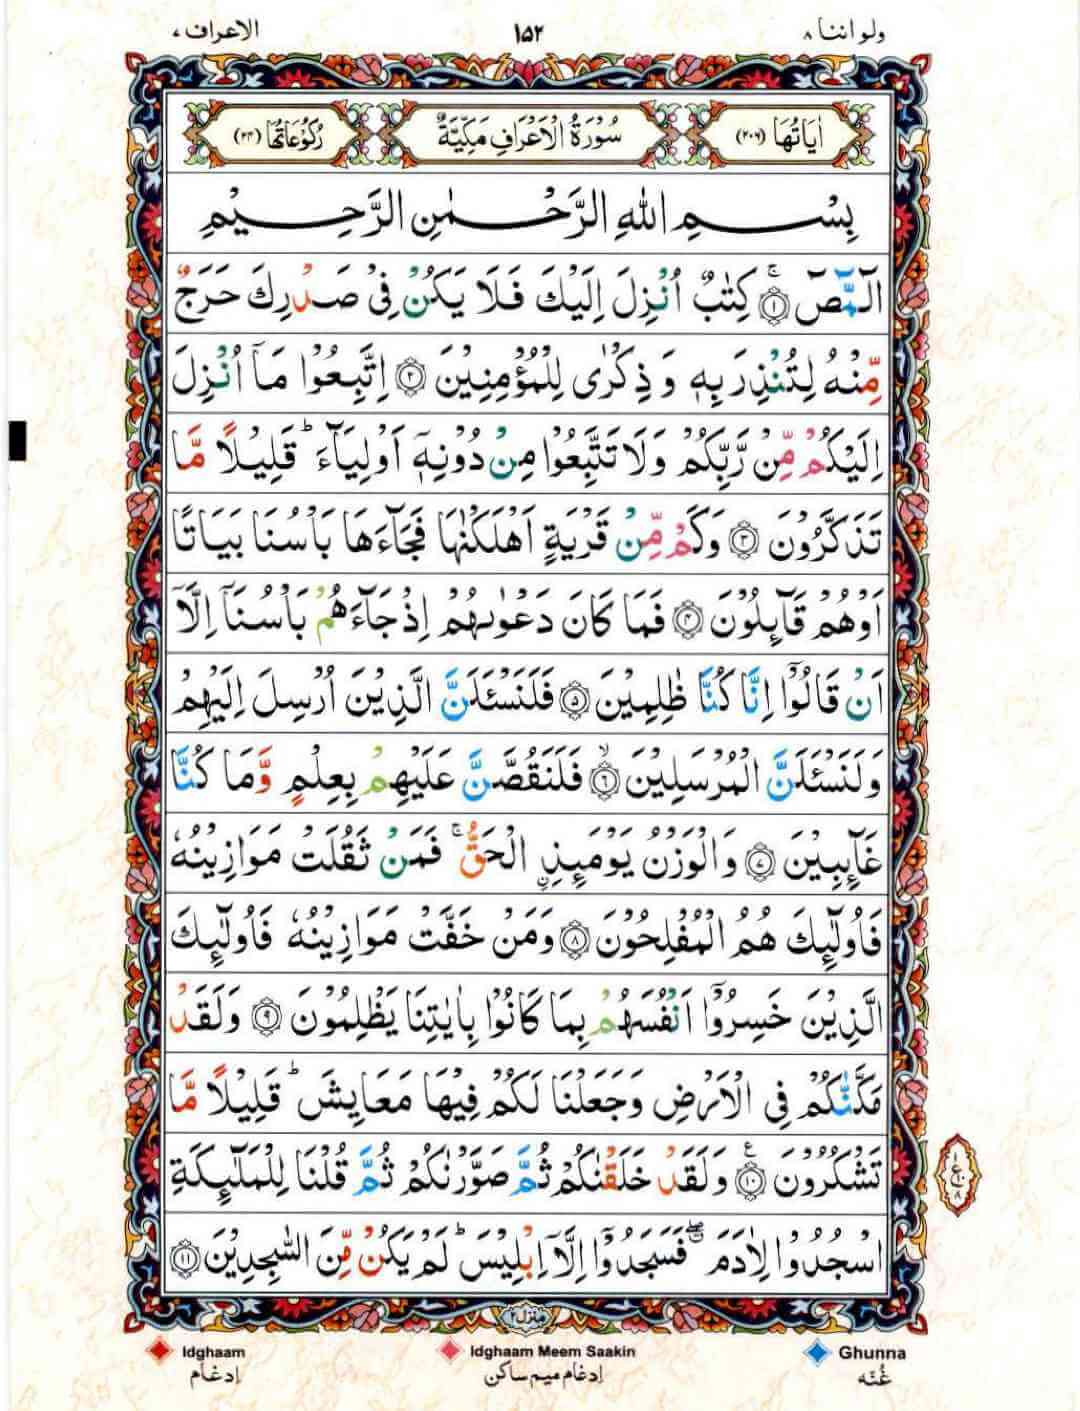 ولو اننا ۸ ۱۵۲ الاعراف ۷
اٰیَاتُهَا (۲۰۶) سُوْرَةُ الْاَعْرَافِ مَكِّیَّةٌ رُكُوْعَاتُهَا (۲۴)
بِسْمِ اللّٰهِ الرَّحْمٰنِ الرَّحِیْمِ
الٓمّٓصٓ ۚ﴿۱﴾ كِتٰبٌ اُنْزِلَ اِلَیْكَ فَلَا یَكُنْ فِیْ صَدْرِكَ حَرَجٌ
مِّنْهُ لِتُنْذِرَ بِهٖ وَ ذِكْرٰی لِلْمُؤْمِنِیْنَ ﴿۲﴾ اِتَّبِعُوْا مَاۤ اُنْزِلَ
اِلَیْكُمْ مِّنْ رَّبِّكُمْ وَلَا تَتَّبِعُوْا مِنْ دُوْنِهٖۤ اَوْلِیَآءَ ؕ قَلِیْلًا مَّا
تَذَكَّرُوْنَ ﴿۳﴾ وَكَمْ مِّنْ قَرْیَةٍ اَهْلَكْنٰهَا فَجَآءَهَا بَاْسُنَا بَیَاتًا
اَوْ هُمْ قَآىِٕلُوْنَ ﴿۴﴾ فَمَا كَانَ دَعْوٰىهُمْ اِذْ جَآءَهُمْ بَاْسُنَاۤ اِلَّاۤ
اَنْ قَالُوْۤا اِنَّا كُنَّا ظٰلِمِیْنَ ﴿۵﴾ فَلَنَسْـَٔلَنَّ الَّذِیْنَ اُرْسِلَ اِلَیْهِمْ
وَلَنَسْـَٔلَنَّ الْمُرْسَلِیْنَ ۙ﴿۶﴾ فَلَنَقُصَّنَّ عَلَیْهِمْ بِعِلْمٍ وَّمَا كُنَّا
غَآىِٕبِیْنَ ﴿۷﴾ وَالْوَزْنُ یَوْمَىِٕذِ ۨالْحَقُّ ۚ فَمَنْ ثَقُلَتْ مَوَازِیْنُهٗ
فَاُولٰٓىِٕكَ هُمُ الْمُفْلِحُوْنَ ﴿۸﴾ وَمَنْ خَفَّتْ مَوَازِیْنُهٗ فَاُولٰٓىِٕكَ
الَّذِیْنَ خَسِرُوْۤا اَنْفُسَهُمْ بِمَا كَانُوْا بِاٰیٰتِنَا یَظْلِمُوْنَ ﴿۹﴾ وَلَقَدْ
مَكَّنّٰكُمْ فِی الْاَرْضِ وَجَعَلْنَا لَكُمْ فِیْهَا مَعَایِشَ ؕ قَلِیْلًا مَّا
تَشْكُرُوْنَ ﴿۱۰﴾ ع وَلَقَدْ خَلَقْنٰكُمْ ثُمَّ صَوَّرْنٰكُمْ ثُمَّ قُلْنَا لِلْمَلٰٓىِٕكَةِ
۱ ع ۱۰ ۸
اسْجُدُوْا لِاٰدَمَ ۖۗ فَسَجَدُوْۤا اِلَّاۤ اِبْلِیْسَ ؕ لَمْ یَكُنْ مِّنَ السّٰجِدِیْنَ ﴿۱۱﴾
منزل ۲
Idghaam Idghaam Meem Saakin Ghunna
اِدغَام اِدغَام میم ساکن غُنَّه